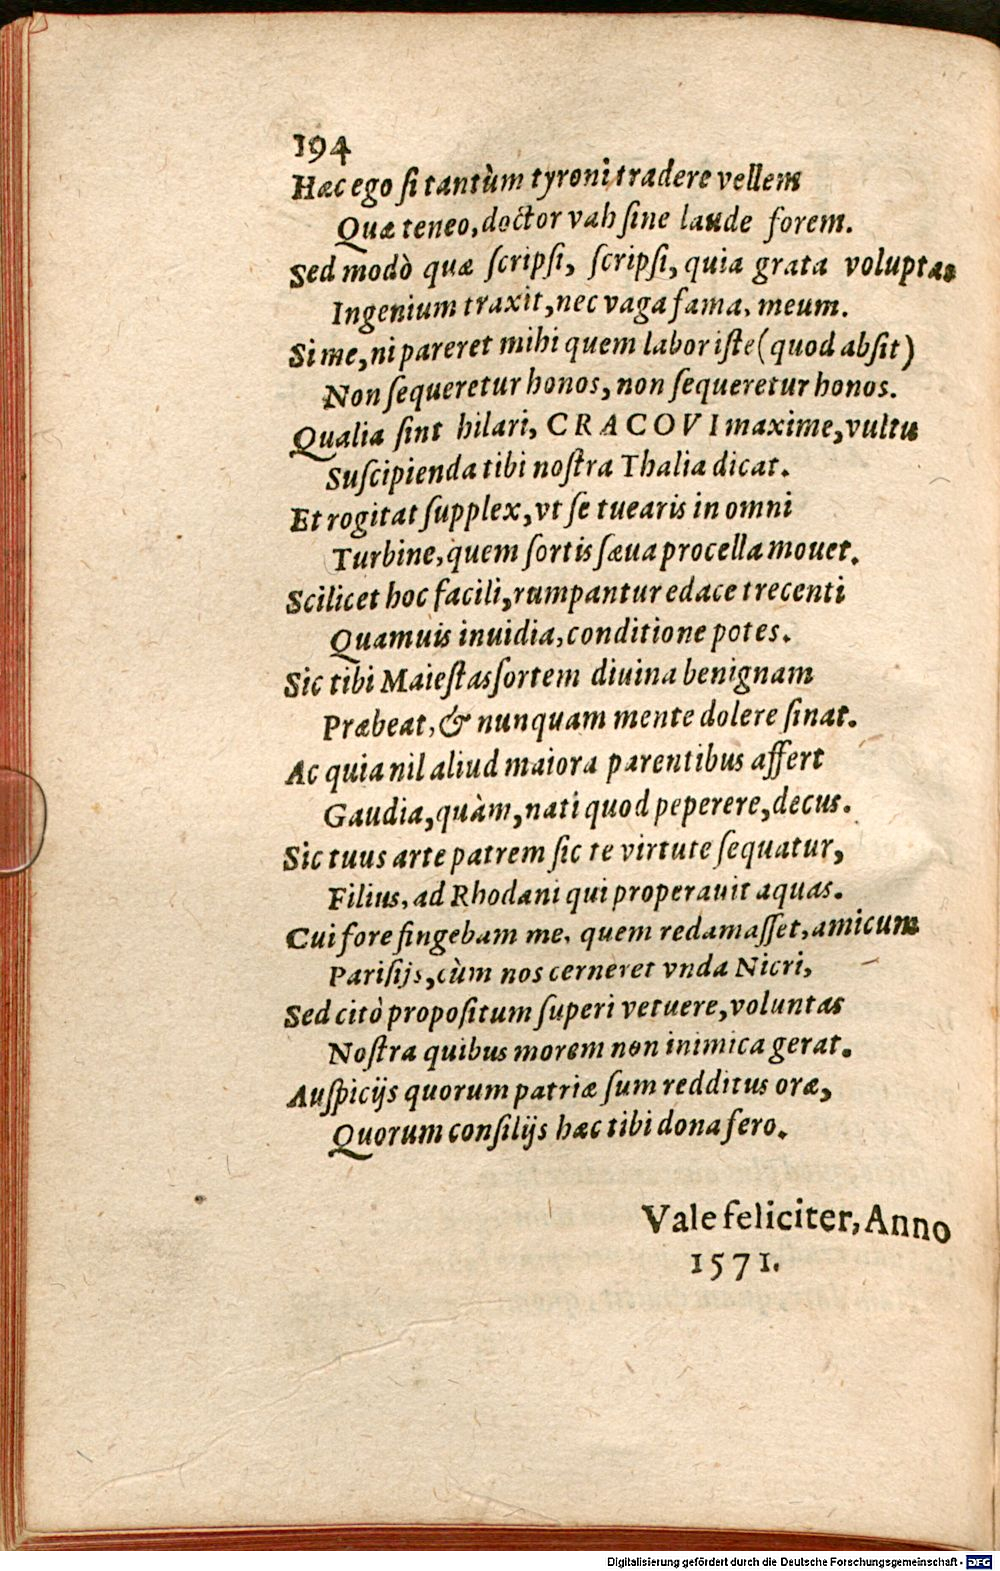 194
Hæc ego ſi tantùm tyroni tradere vellem
Quæ teneo, doctor vah ſine laude forem.
Sed modò quæ ſcripſi, ſcripſi, quia grata voluptas
Ingenium traxit, nec vaga fama, meum.
Si me, ni pareret mihi quem labor iſte (quod abſit)
Non ſequeretur honos, non ſequeretur honos.
Qualia ſint hilari, CRACOVI maxime, vultu
Suſcipienda tibi noſtra Thalia dicat.
Et rogitat ſupplex, vt ſe tuearis in omni
Turbine, quem ſortis ſæua procella mouet.
Scilicet hoc facili, rumpantur edace trecenti
Quamuis inuidia, conditione potes.
Sic tibi Maieſtas ſortem diuina benignam
Præbeat, & nunquam mente dolere ſinat.
Ac quia nil aliud maiora parentibus affert
Gaudia, quàm, nati quod peperere, decus.
Sic tuus arte patrem ſic te virtute ſequatur,
Filius, ad Rhodani qui properauit aquas.
Cui fore fingebam me, quem redamaſſet, amicum
Pariſijs, cùm nos cerneret vnda Nicri,
Sed citò propoſitum ſuperi vetuere, voluntas
Noſtra quibus morem non inimica gerat.
Auſpicijs quorum patriæ ſum redditus oræ,
Quorum conſilijs hæc tibi dona fero.
Vale feliciter, Anno
1571.
Digitalisierung gefördert durch die Deutsche Forschungsgemeinschaft - DFG